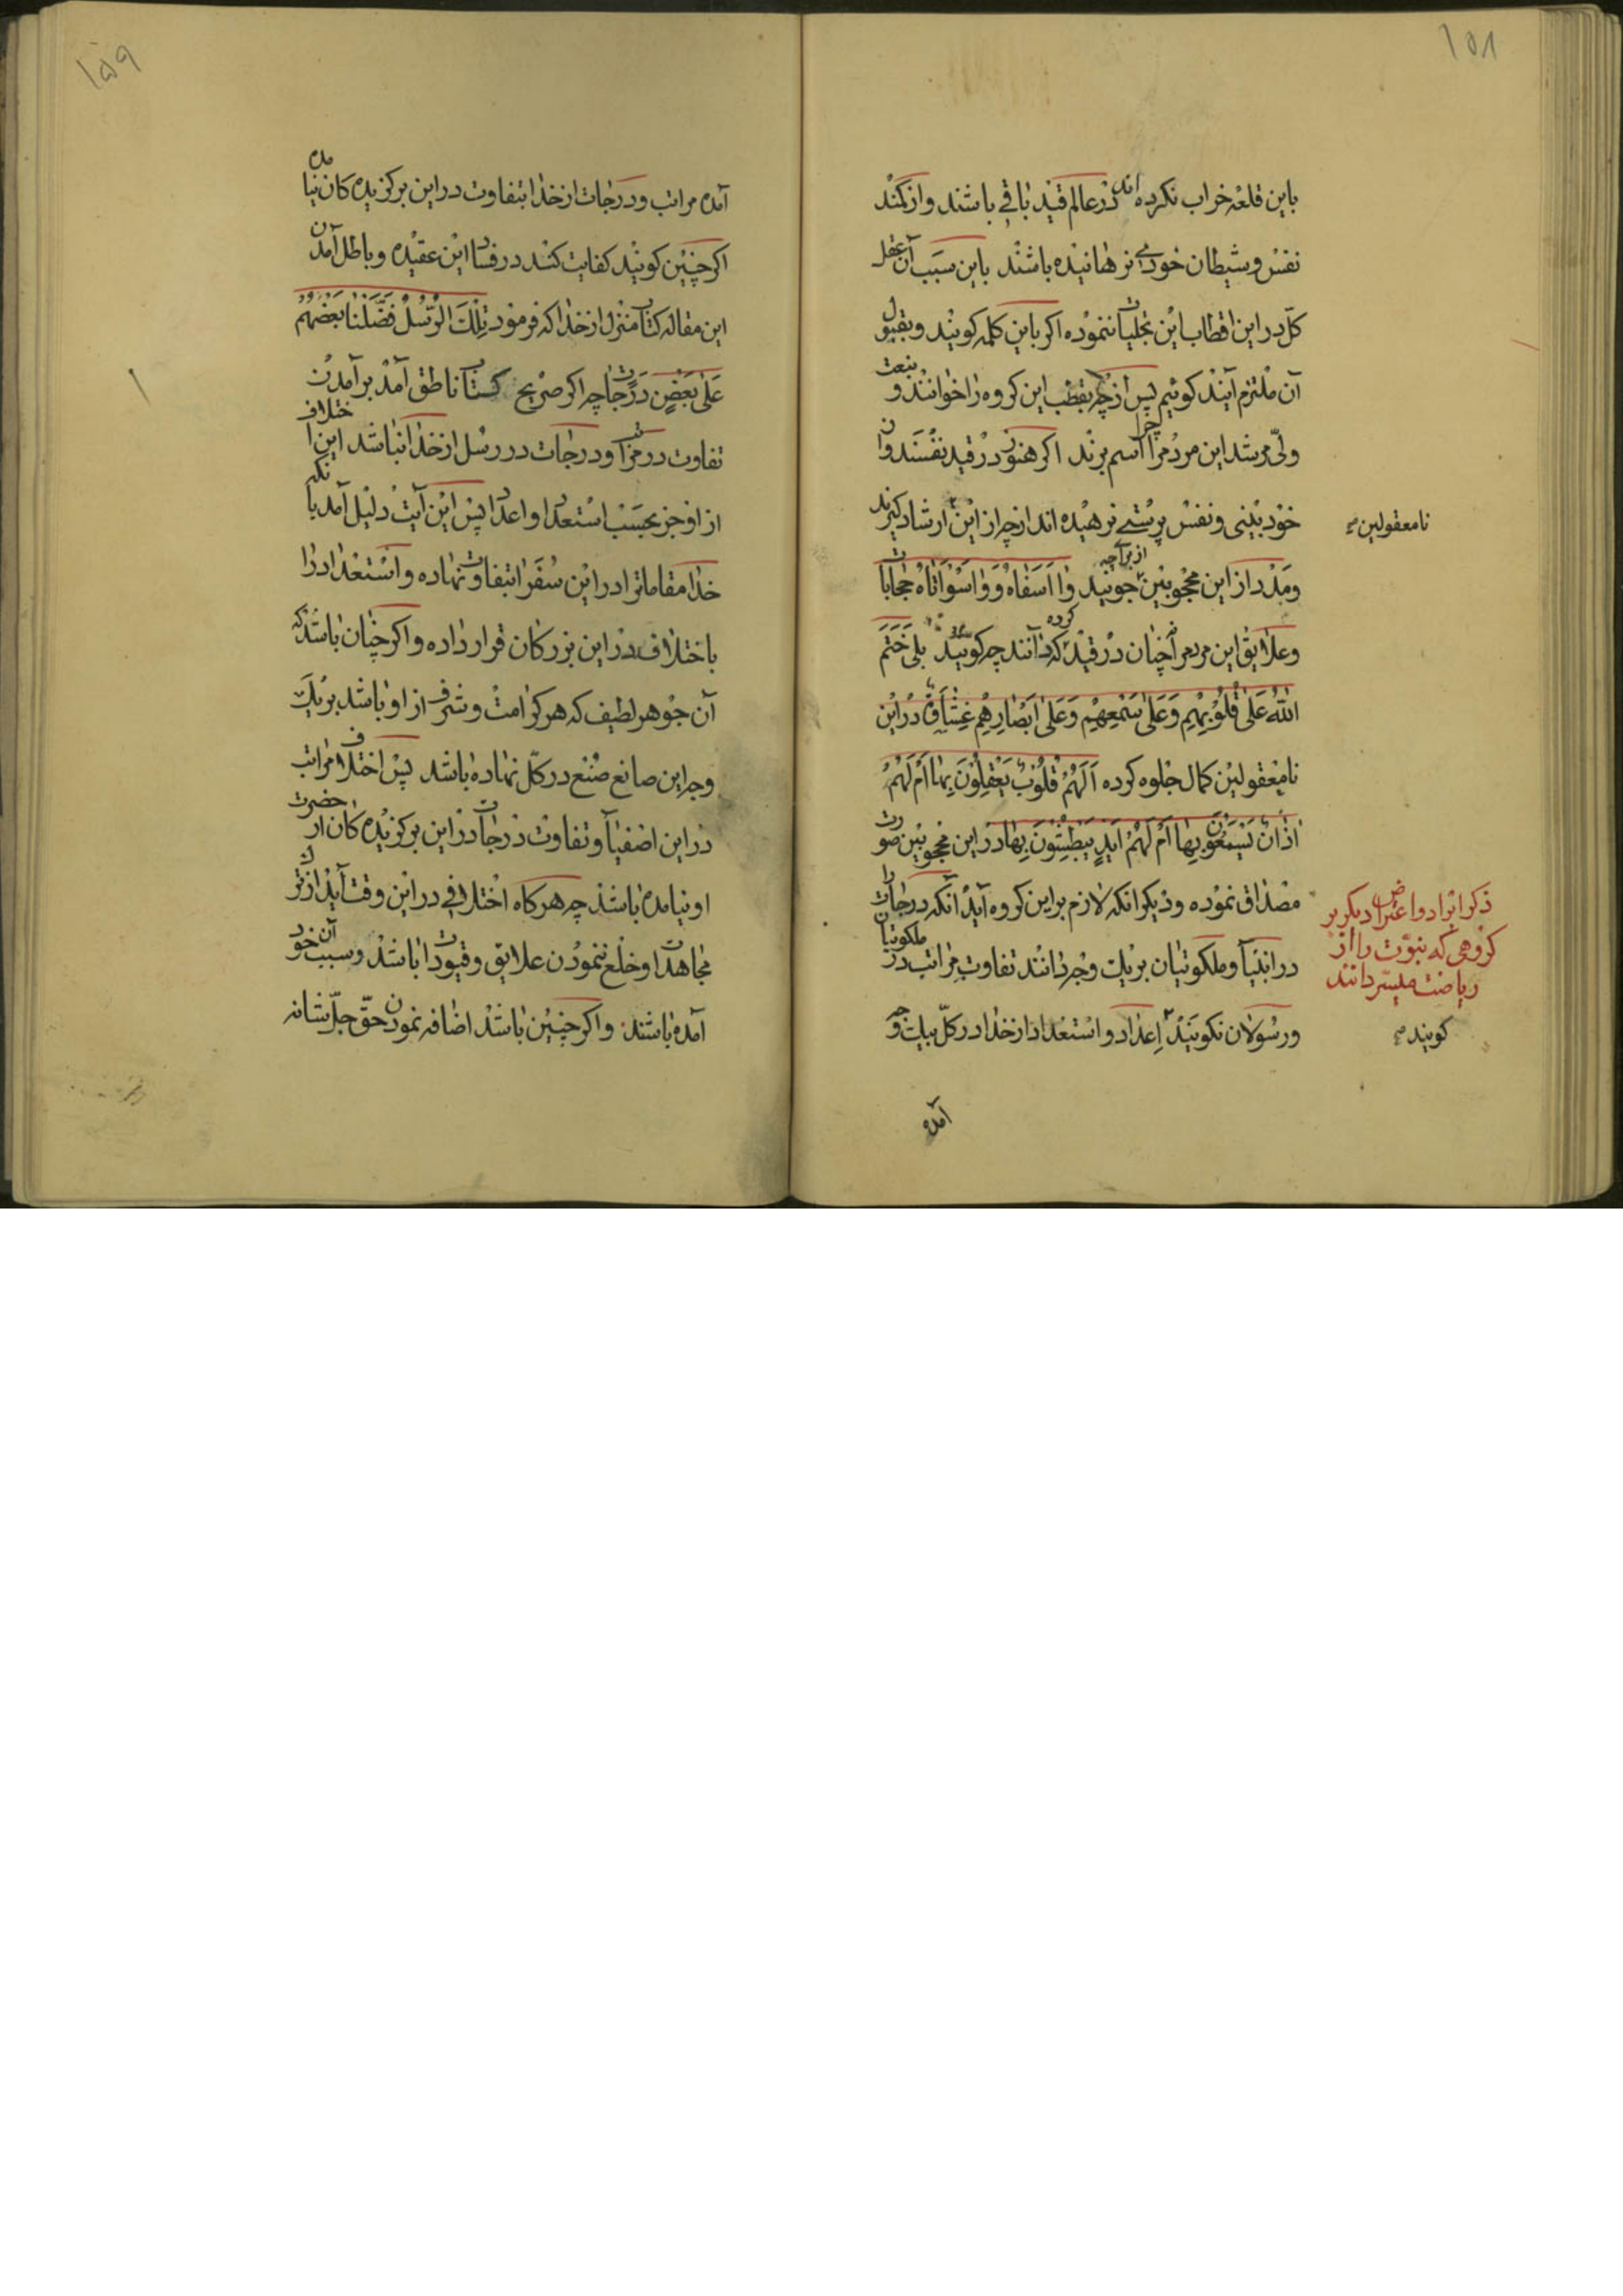 ١٥٨
باین قلعه خراب نکرده اند در عالم قید باقی باشند و از کمند
نفس و شیطان خودی نرهانیده باشند باین سبب آن عقل
کلّ در این اقطاب این تجلیات ننموده اکر باین کلمه کویند و بقبول
آن ملتزم آیند کوئیم پس از چه بقطب این کروه را خوانند و
ولیّ مرشد این مردم را اسم برند اکر هنوز در قید نفسند و از
خود بینی و نفس پرستی نرهیده اند از چه از این ارشاد کیرند
نامعقولین صح
و مدد از این محجوبین از برای چه جویند وا اسفاه و وا سوأتاه حجابات
و علایق این مردم را چنان در قید کرده که ندانند چه کویند بلی خَتَمَ
اللّٰهُ عَلیٰ قُلُوبِهِم وَعَلیٰ سَمْعِهِمْ وَعَلیٰ اَبْصَارِهِم غِشٰاوَةٌ در این
نامعقولین کمال جلوه کرده اَلَهُمْ قُلُوبٌ یَعْقِلُونَ بِهٰا اَمْ لَهُمْ
اٰذٰانٌ یَسْمَعُونَ بِهٰا اَمْ لَهُمْ اَیْدٍ یَبْطِشُونَ بِهٰا در این محجوبین صورت
مصداق نموده و دیکر انکه لازم بر این کروه آید آنکه درجات را
ذکر ایراد و اعتراض دیکر بر
کروهی که نبوّت را از
ریاضت میسّر دانند
در انبیا و ملکوتیان بریک وجه دانند تفاوت مراتب در ملکوتیان
و رسولان نکویند اعداد و استعداد از خدا در کلّ بیک وجه
کویند صح
آمده
١٥٩
آمده مراتب و درجات از خدا بتفاوت در این برکزیده کان نیامده
اکر چنین کویند کفایت کند در فساد این عقیده و باطل آمدن
این مقاله کتاب منزل از خدا که فرمود تِلْكَ الرُّسُلُ فَضَّلْنٰا بَعْضَهُمْ
عَلیٰ بَعْضٍ دَرَجٰات چه اکر صریح کتاب ناطق آمد بر آمدن
تفاوت در مراتب و درجات در رسل از خدا نباشد این اختلاف
از او جز بحسب استعداد و اعداد پس این آیت دلیل آمد بانکه
خدا مقامات را در این سفرا بتفاوت نهاده و استعداد را
باختلاف در این بزرکان قرار داده و اکر چنان باشد که
آن جوهر لطیف که هر کرامت و شرف از او باشد بریک
وجه این صانع صنع در کلّ نهاده باشد پس اختلاف مراتب
در این اصفیا و تفاوت درجات در این برکزیده کان از حضرت
او نیامده باشد چه هرکاه اختلافی در این وقت آید از ترک
مجاهدات و خلع ننمودن علایق و قیودات باشد و سبب آن خود
آمده باشند و اکر چنین باشد اضافه نمودن حقّ جلّ شانه